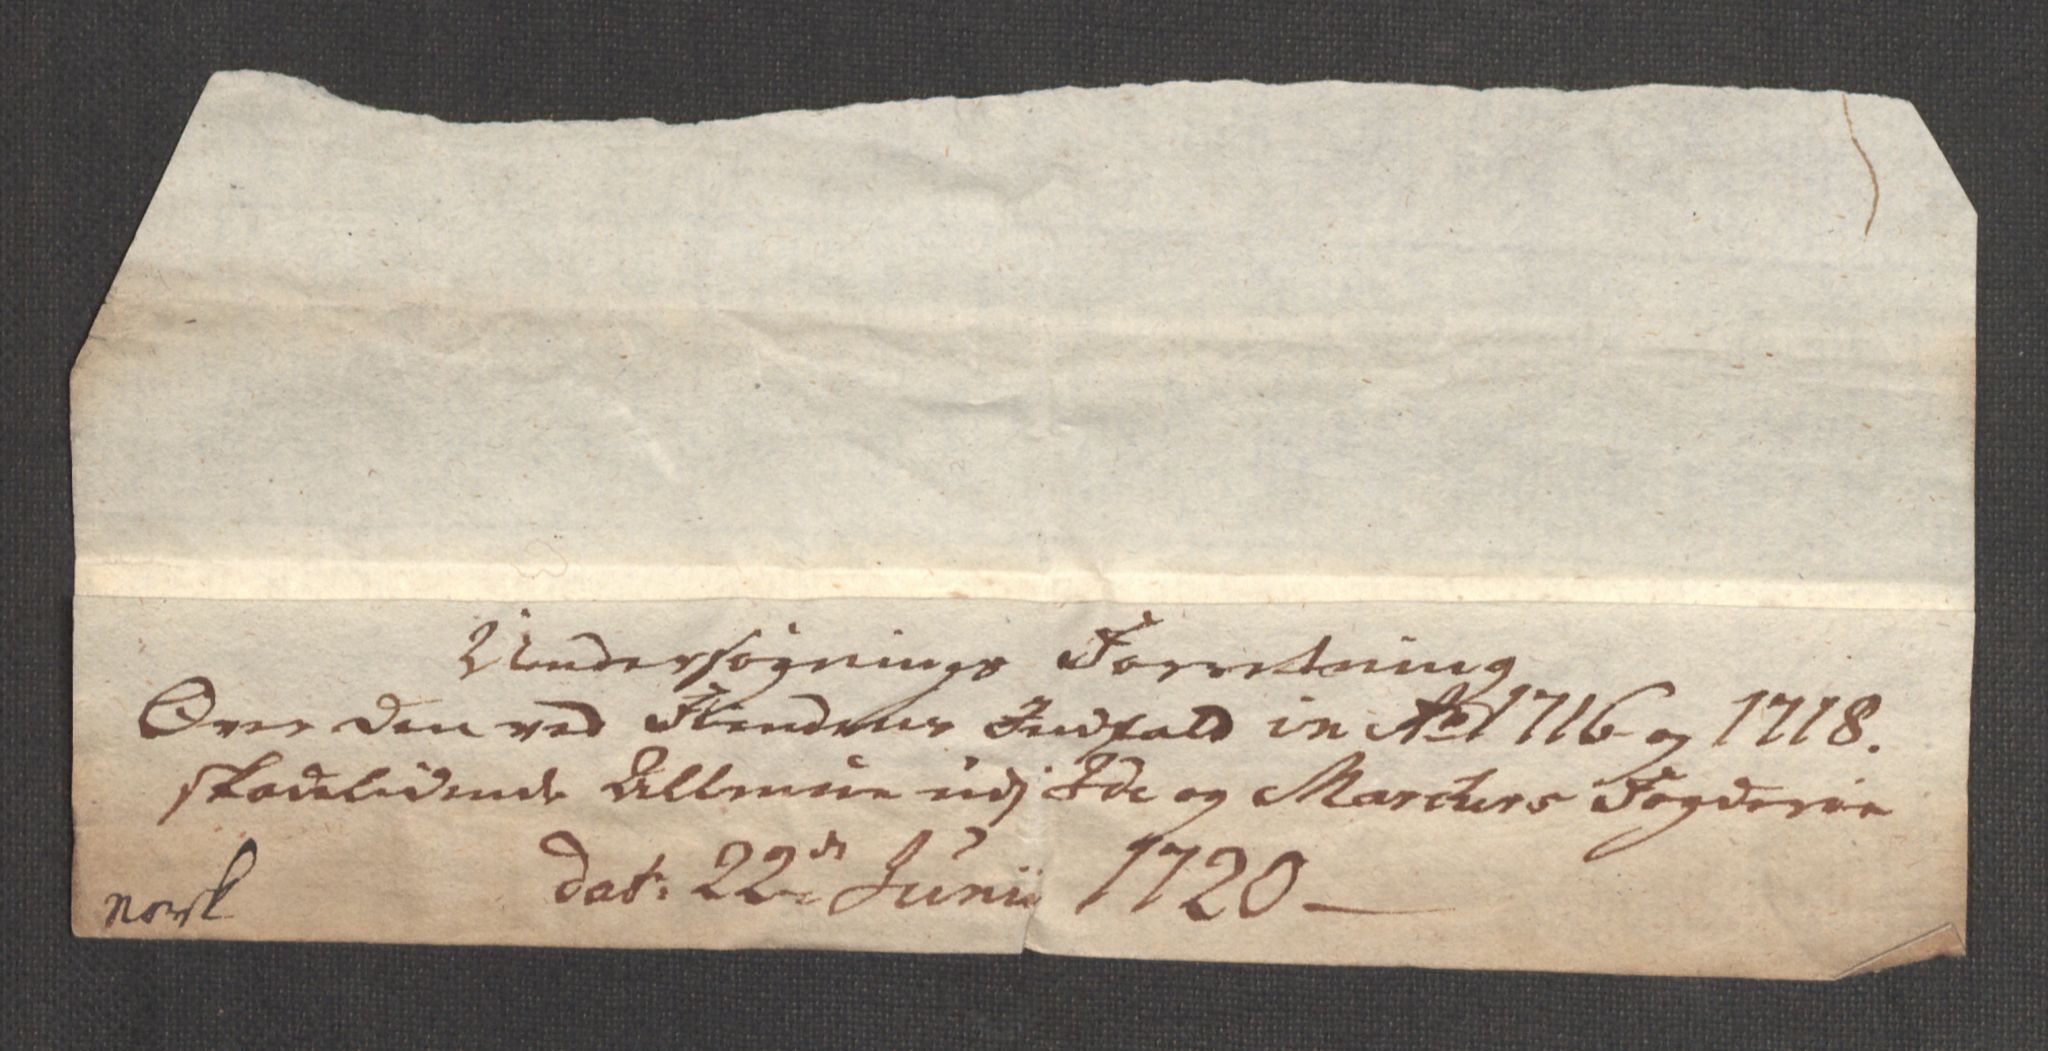 Undersøgnings Forretning
Over den ved Fiendens Indfald in Ao 1716 og 1718.
skadelidende Allmüe udj Ide og Marchers Fogderie
dat: 22de Junii 1720
norsk